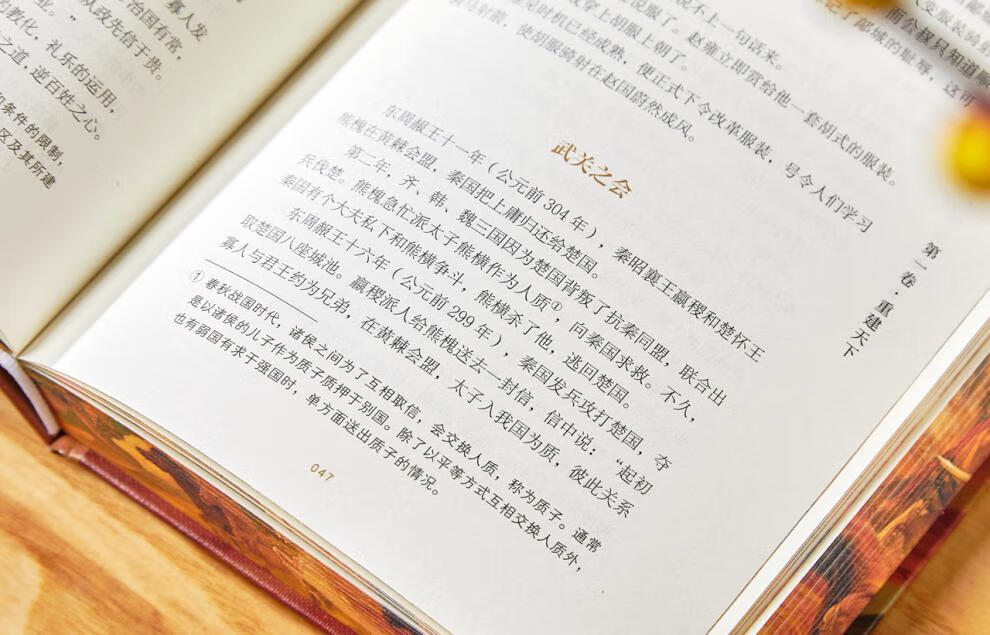 寡人发
治国有常，
从政先信于贵。
业。”
的教化，礼乐的运用，
之道，逆百姓之心。
和条件的限制，
区及其所建
变服装骑射
而公叔只知道顺
记了鄗城的耻辱，这可
说不上一句话来。
说服了。赵雍立即赏给他一套胡式的服装。
穿上胡服上朝了。
见时机已经成熟，便正式下令改革服装，号令人们学习
骑马射箭，使胡服骑射在赵国蔚然成风。
武关之会
东周赧王十一年（公元前304年），秦昭襄王嬴稷和楚怀王
熊槐在黄棘会盟，秦国把上庸归还给楚国。
第二年，齐、韩、魏三国因为楚国背叛了抗秦同盟，联合出
兵伐楚。熊槐急忙派太子熊横作为人质①，向秦国求救。不久，
秦国有个大夫私下和熊横争斗，熊横杀了他，逃回楚国。
东周赧王十六年（公元前299年），秦国发兵攻打楚国，夺
取楚国八座城池。嬴稷派人给熊槐送去一封信，信中说：“起初
寡人与君王约为兄弟，在黄棘会盟，太子入我国为质，彼此关系
① 春秋战国时代，诸侯之间为了互相取信，会交换人质，称为质子。通常
是以诸侯的儿子作为质子质押于别国。除了以平等方式互相交换人质外，
也有弱国有求于强国时，单方面送出质子的情况。
047
第一卷·重建天下